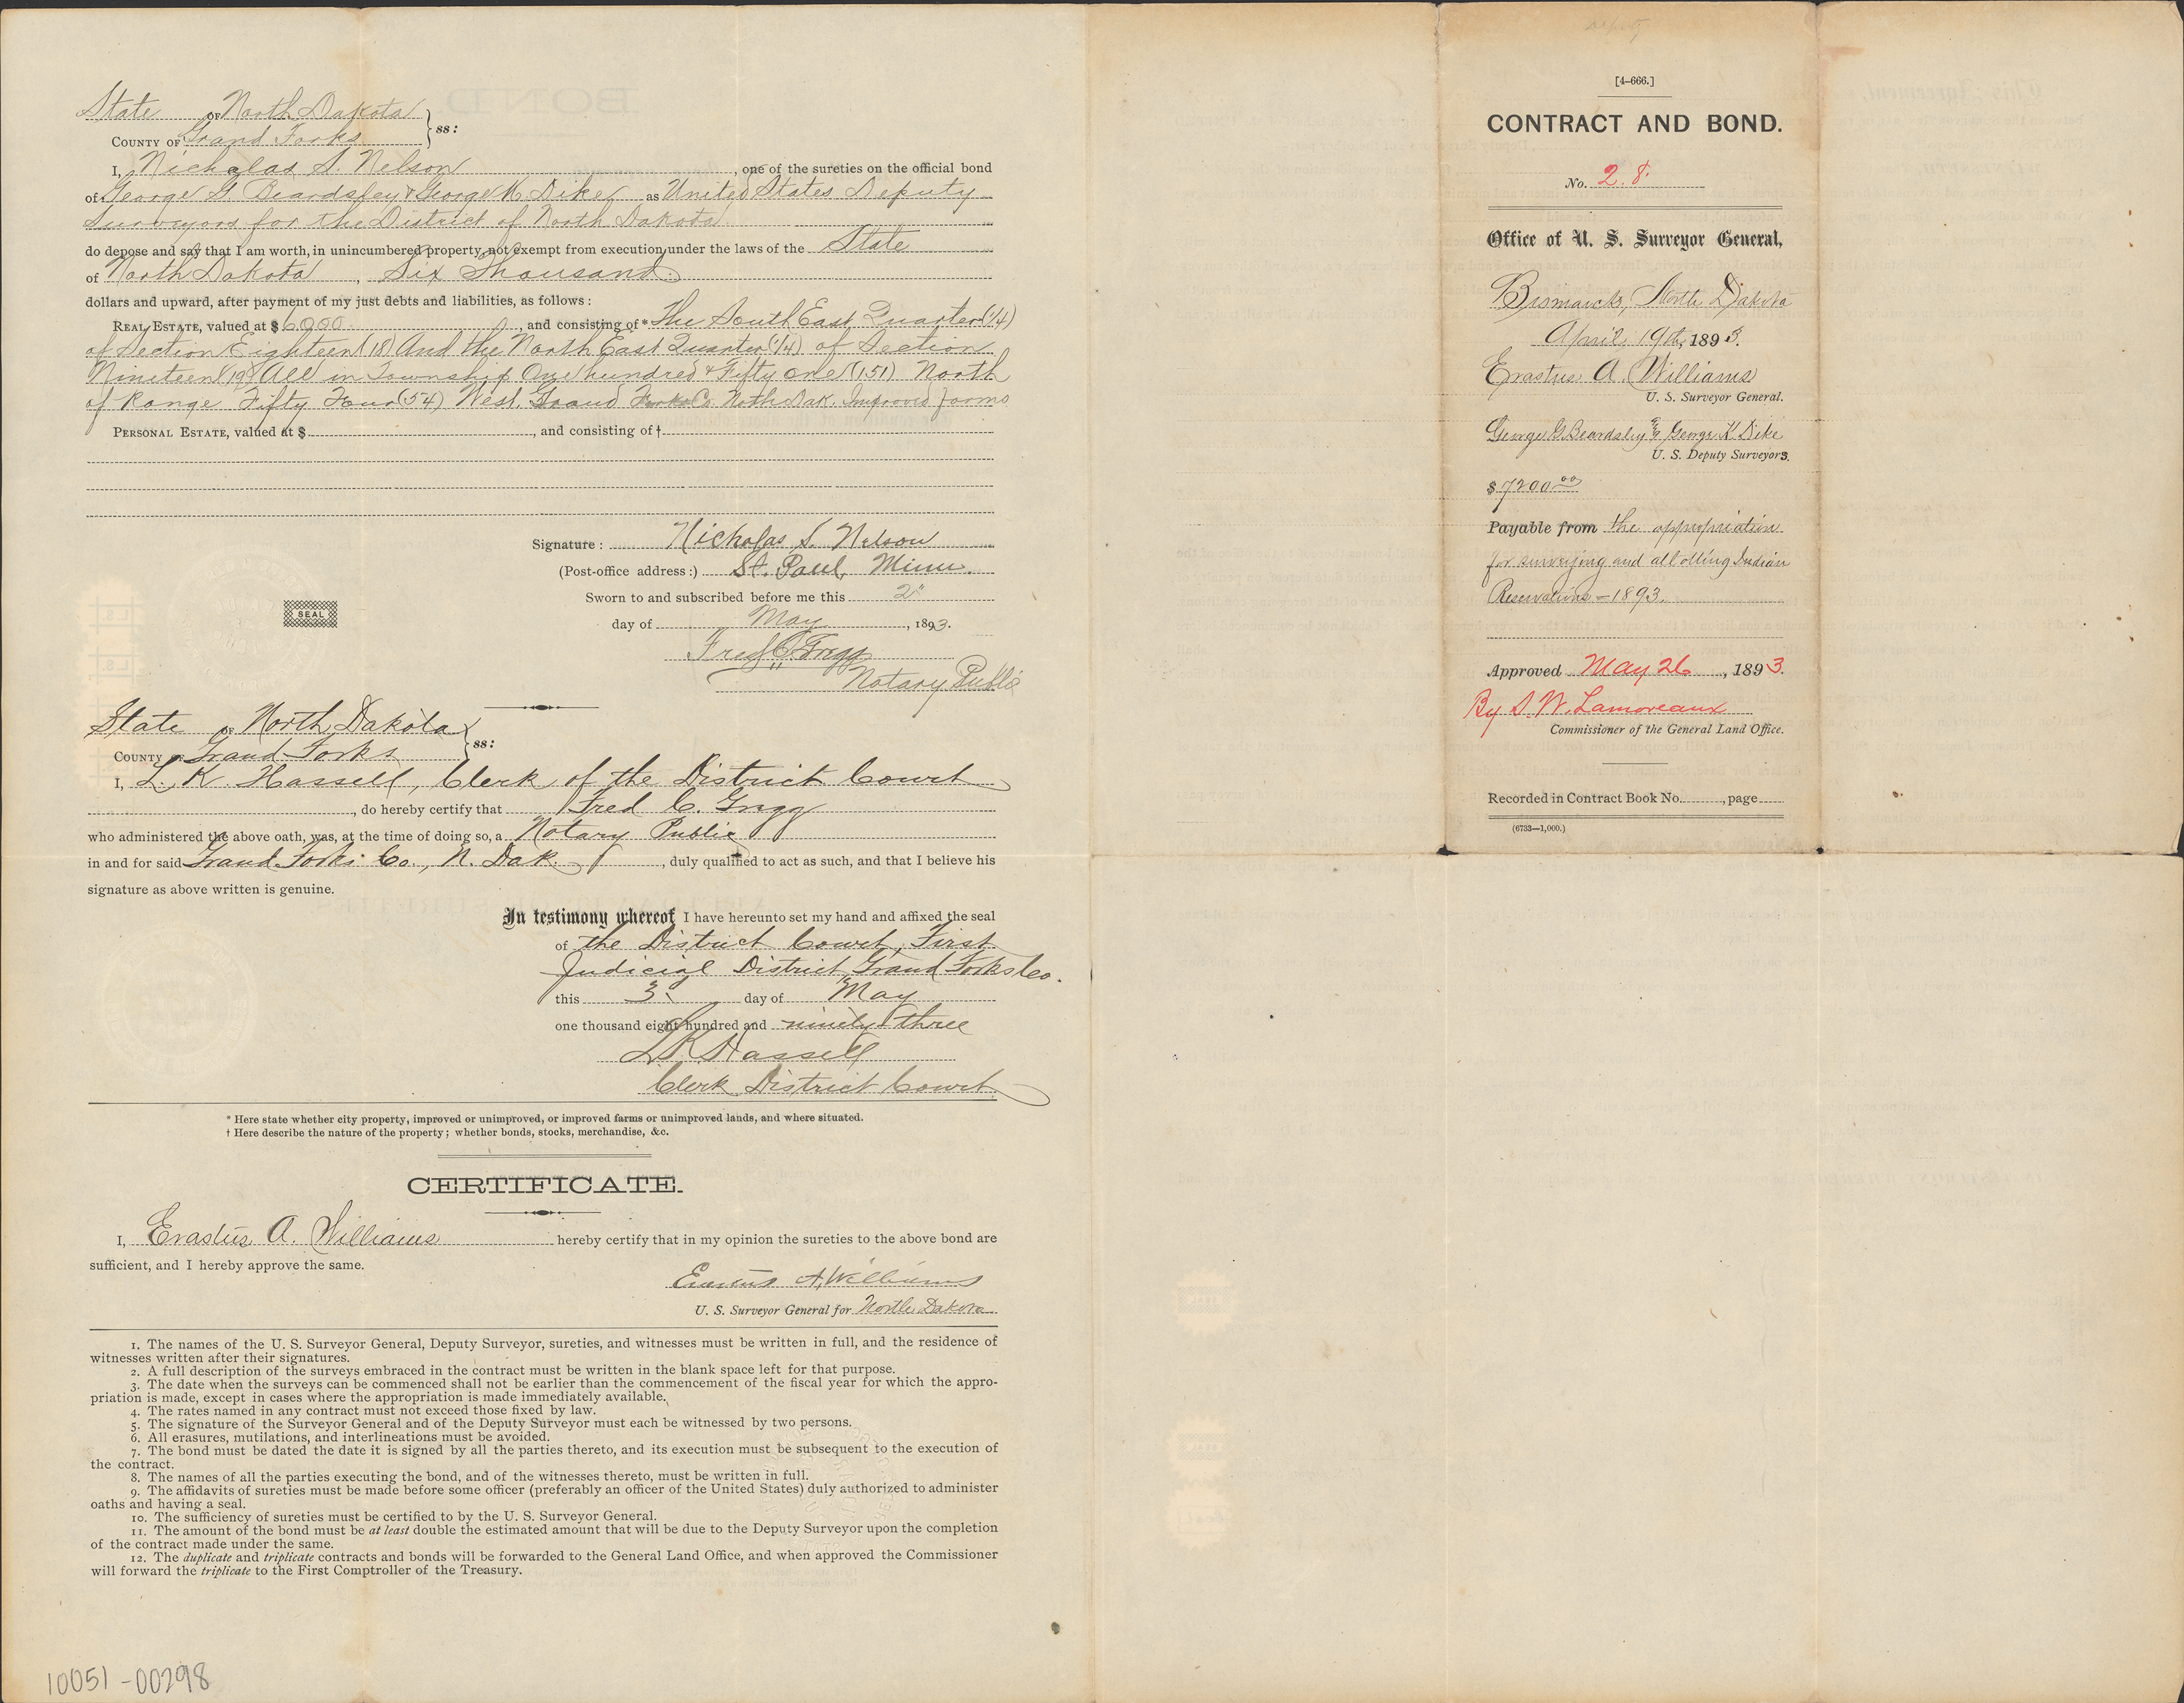 State OF North Dakota
COUNTY OF Grand Forks } ss:
I, Nicholas S. Nelson, one of the sureties on the official bond
of George G. Beardsley & George K. Dike as United States Deputy
Surveyors for the District of North Dakota
do depose and say that I am worth, in unincumbered property, not exempt from execution under the laws of the State
of North Dakota, Six Thousand
dollars and upward, after payment of my just debts and liabilities, as follows:
REAL ESTATE, valued at $ 6000., and consisting of * The South East Quarter (1/4)
of Section Eighteen (18) And the North East Quarter (1/4) of Section
Nineteen (19) All in Township One hundred & Fifty one (151) North
of Range Fifty Four (54) West. Grand Forks Co. North Dak. Improved farms
PERSONAL ESTATE, valued at $, and consisting of †
Signature: Nicholas S. Nelson
(Post-office address:) St. Paul, Minn.
Sworn to and subscribed before me this 2"
SEAL
day of May, 1893.
Fred C. Grigg
Notary Public
State OF North Dakota
COUNTY OF Grand Forks } ss:
I, L. K. Hassell, Clerk of the District Court
, do hereby certify that Fred C. Grigg
who administered the above oath, was, at the time of doing so, a Notary Public
in and for said Grand Forks Co., N. Dak., duly qualified to act as such, and that I believe his
signature as above written is genuine.
In testimony whereof I have hereunto set my hand and affixed the seal
of the District Court, First
Judicial District, Grand Forks Co.
this 3. day of May
one thousand eight hundred and ninety three
L K Hassell
Clerk District Court
* Here state whether city property, improved or unimproved, or improved farms or unimproved lands, and where situated.
† Here describe the nature of the property; whether bonds, stocks, merchandise, &c.
CERTIFICATE.
I, Erastus A. Williams hereby certify that in my opinion the sureties to the above bond are
sufficient, and I hereby approve the same.
Erastus A. Williams
U. S. Surveyor General for North Dakota
1. The names of the U. S. Surveyor General, Deputy Surveyor, sureties, and witnesses must be written in full, and the residence of
witnesses written after their signatures.
2. A full description of the surveys embraced in the contract must be written in the blank space left for that purpose.
3. The date when the surveys can be commenced shall not be earlier than the commencement of the fiscal year for which the appro-
priation is made, except in cases where the appropriation is made immediately available.
4. The rates named in any contract must not exceed those fixed by law.
5. The signature of the Surveyor General and of the Deputy Surveyor must each be witnessed by two persons.
6. All erasures, mutilations, and interlineations must be avoided.
7. The bond must be dated the date it is signed by all the parties thereto, and its execution must be subsequent to the execution of
the contract.
8. The names of all the parties executing the bond, and of the witnesses thereto, must be written in full.
9. The affidavits of sureties must be made before some officer (preferably an officer of the United States) duly authorized to administer
oaths and having a seal.
10. The sufficiency of sureties must be certified to by the U. S. Surveyor General.
11. The amount of the bond must be at least double the estimated amount that will be due to the Deputy Surveyor upon the completion
of the contract made under the same.
12. The duplicate and triplicate contracts and bonds will be forwarded to the General Land Office, and when approved the Commissioner
will forward the triplicate to the First Comptroller of the Treasury.
10051-00298
[4-666.]
CONTRACT AND BOND.
No. 28.
Office of U. S. Surveyor General,
Bismarck, North Dakota
April 19th, 1893.
Erastus A. Williams
U. S. Surveyor General.
George G. Beardsley and George K. Dike
U. S. Deputy Surveyors.
$7200.00
Payable from the appropriation
for surveying and allotting Indian
Reservations - 1893.
Approved May 26, 1893.
By S. W. Lamoreaux
Commissioner of the General Land Office.
Recorded in Contract Book No. , page
(6733—1,000.)